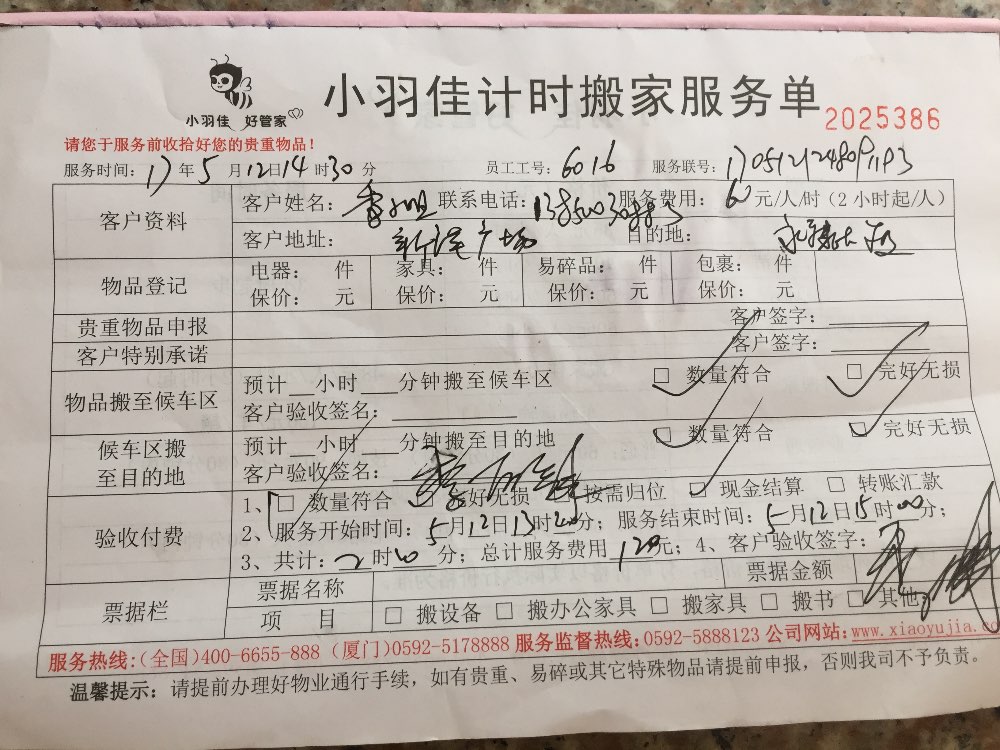 小羽佳 好管家
小羽佳计时搬家服务单 2025386
请您于服务前收拾好您的贵重物品！
服务时间：17年5月12日14时30分 员工工号：6016 服务联号：
客户资料 客户姓名： 联系电话： 服务费用：60元/人/时（2小时起/人）
客户地址： 广场 目的地：
物品登记 电器： 件 家具： 件 易碎品： 件 包裹： 件
保价： 元 保价： 元 保价： 元 保价： 元
贵重物品申报 客户签字：
客户特别承诺 客户签字：
物品搬至候车区 预计__小时___分钟搬至候车区 □ 数量符合 □ 完好无损
客户验收签名：
候车区搬至目的地 预计__小时___分钟搬至目的地 □ 数量符合 □ 完好无损
客户验收签名：
验收付费 1、□ 数量符合 □ 完好无损 □ 按需归位 □ 现金结算 □ 转账汇款
2、服务开始时间：5月12日13时00分；服务结束时间：5月12日15时00分；
3、共计：2时00分；总计服务费用120元；4、客户验收签字：
票据栏 票据名称 票据金额
项 目 □ 搬设备 □ 搬办公家具 □ 搬家具 □ 搬书 □ 其他
服务热线:(全国)400-6655-888 (厦门)0592-5178888 服务监督热线:0592-5888123 公司网站:www.xiaoyujia.co
温馨提示：请提前办理好物业通行手续，如有贵重、易碎或其它特殊物品请提前申报，否则我司不予负责。